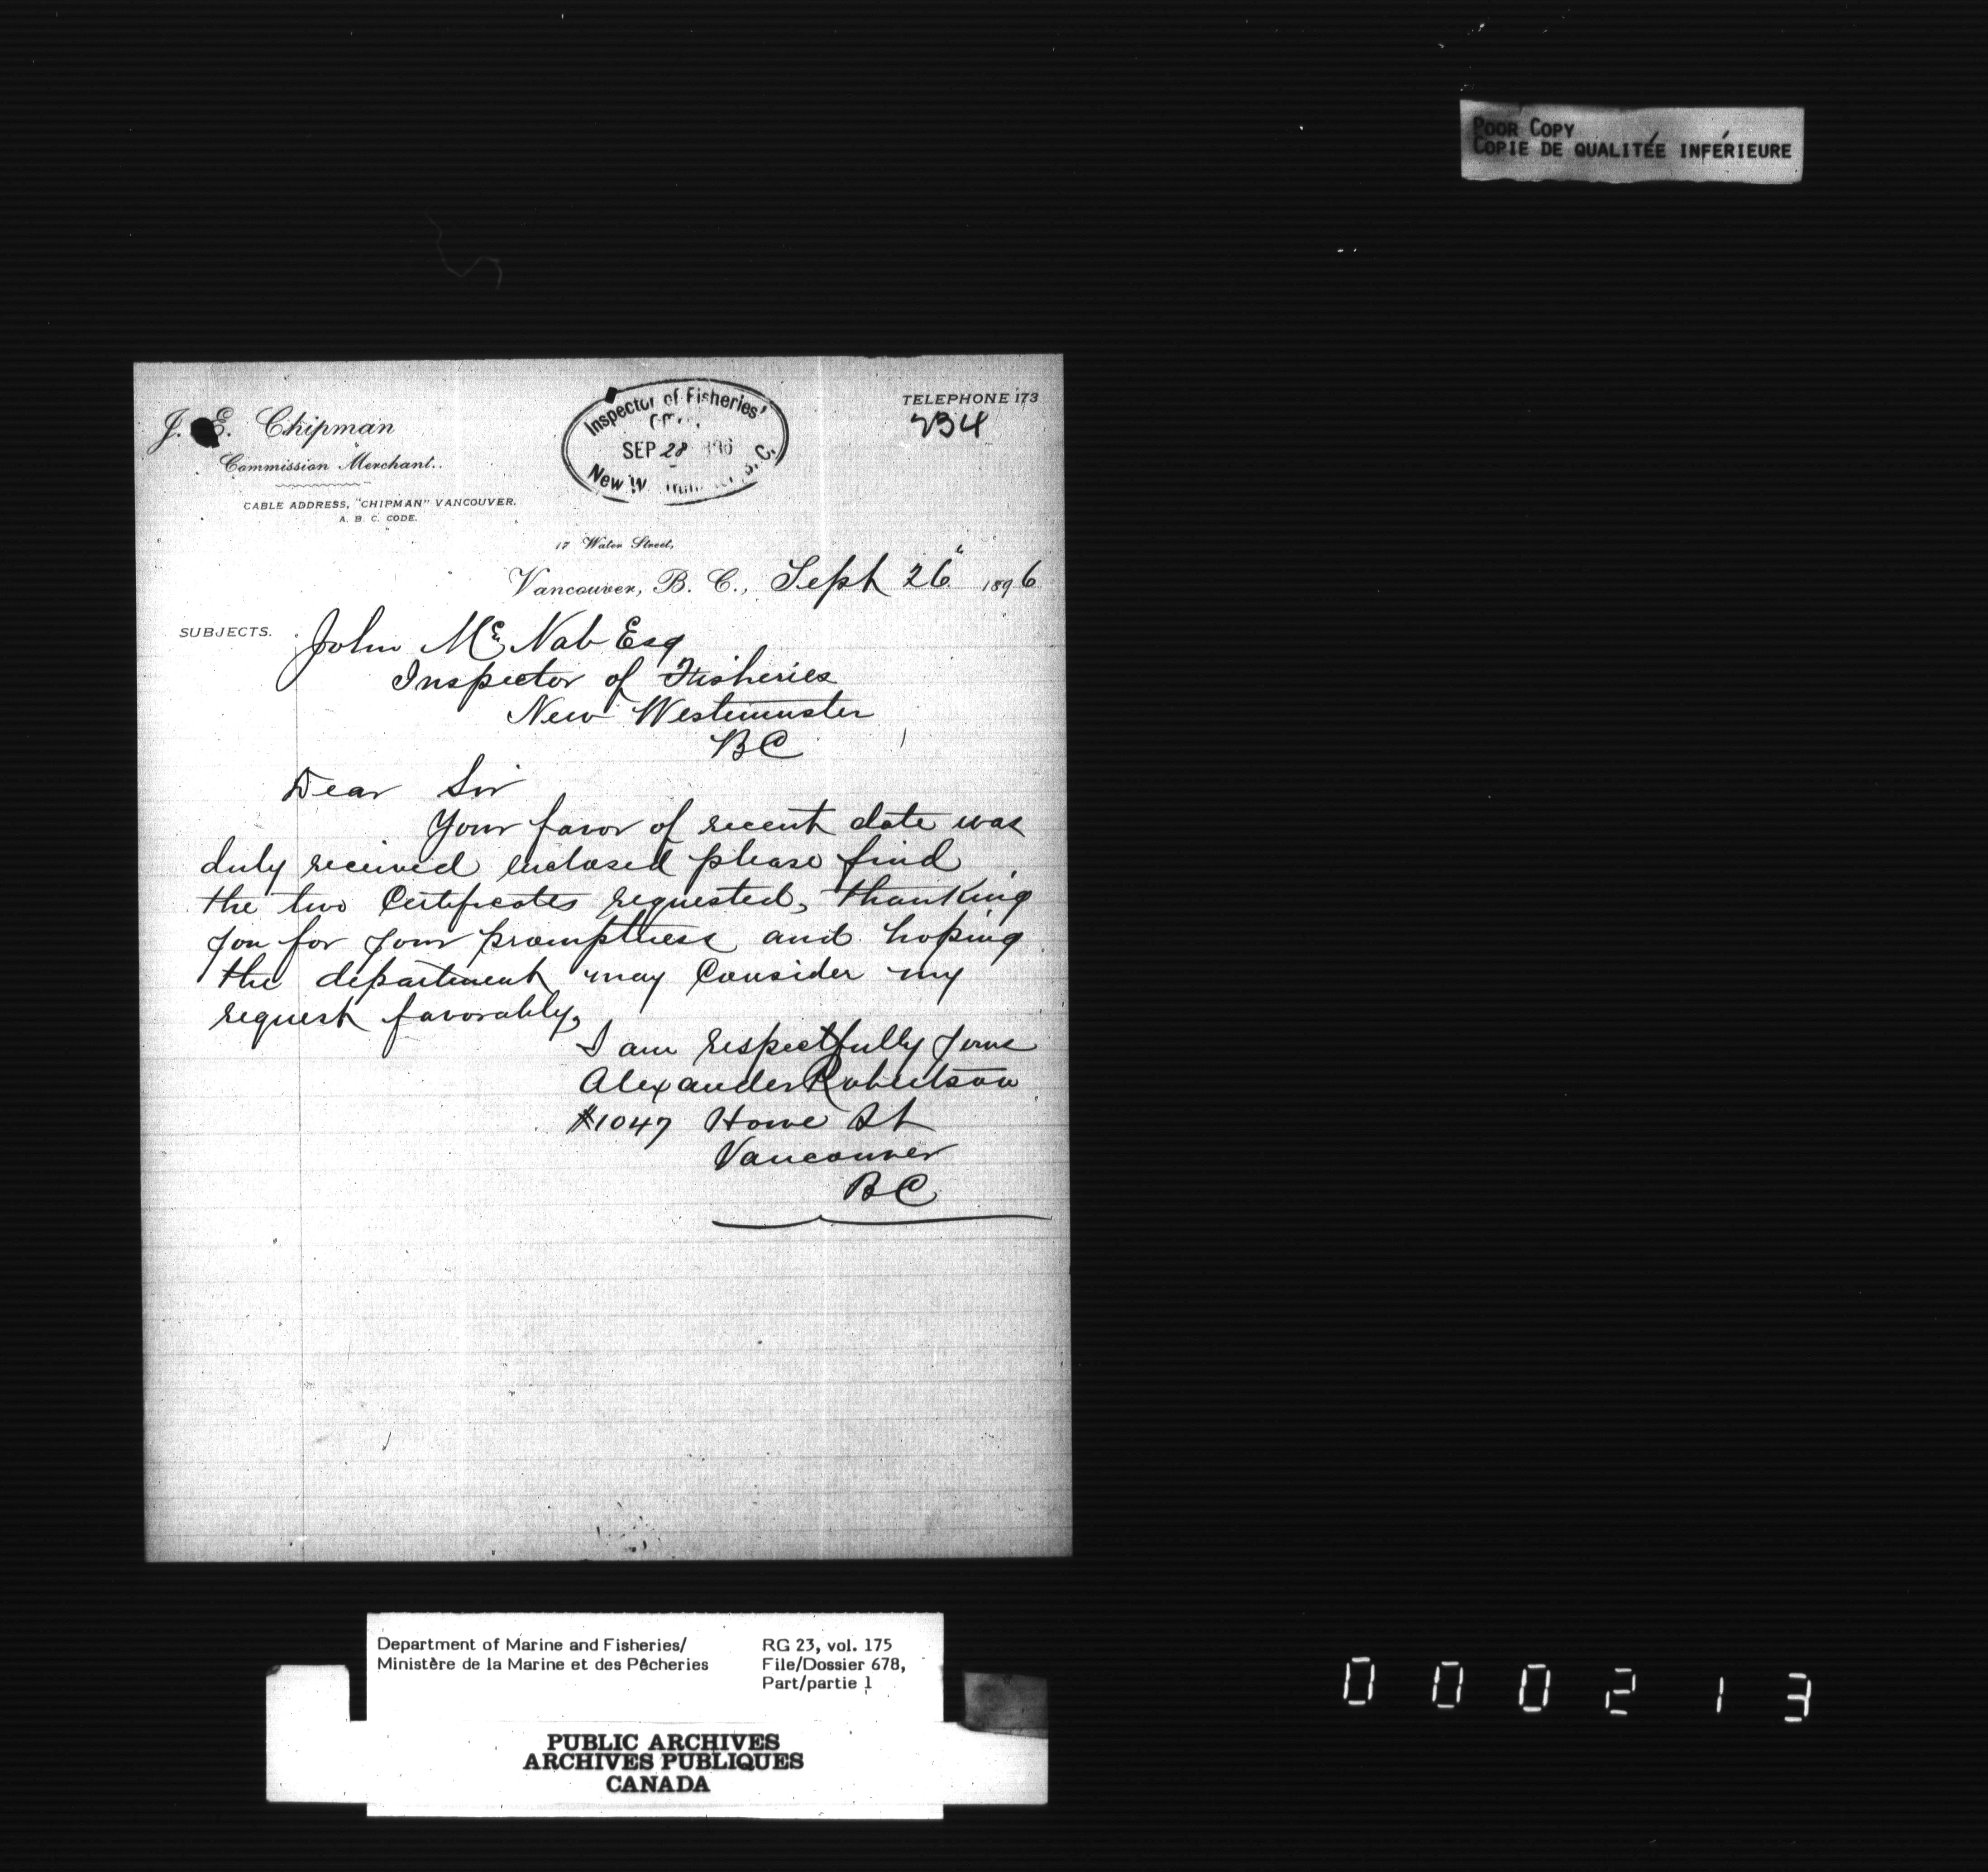 POOR COPY
COPIE DE QUALITÉE INFÉRIEURE
J. E. Chipman
Commission Merchant.
CABLE ADDRESS, "CHIPMAN" VANCOUVER.
A. B. C. CODE.
Inspector of Fisheries'
SEP 28 1896
New
TELEPHONE 173
234
17 Water Street,
Vancouver, B. C., Sept 26" 1896
SUBJECTS.
John Mc Nab Esq
Inspector of Fisheries
New Westminster
BC
Dear Sir
Your favor of recent date was
duly received enclosed please find
the two Certificates requested, thanking
you for your promptness and hoping
the department may Consider my
request favorably,
I am respectfully yours
Alexander Robertson
#1047 Howe St
Vancouver
BC
Department of Marine and Fisheries/
Ministère de la Marine et des Pêcheries
RG 23, vol. 175
File/Dossier 678,
Part/partie 1
PUBLIC ARCHIVES
ARCHIVES PUBLIQUES
CANADA
000213